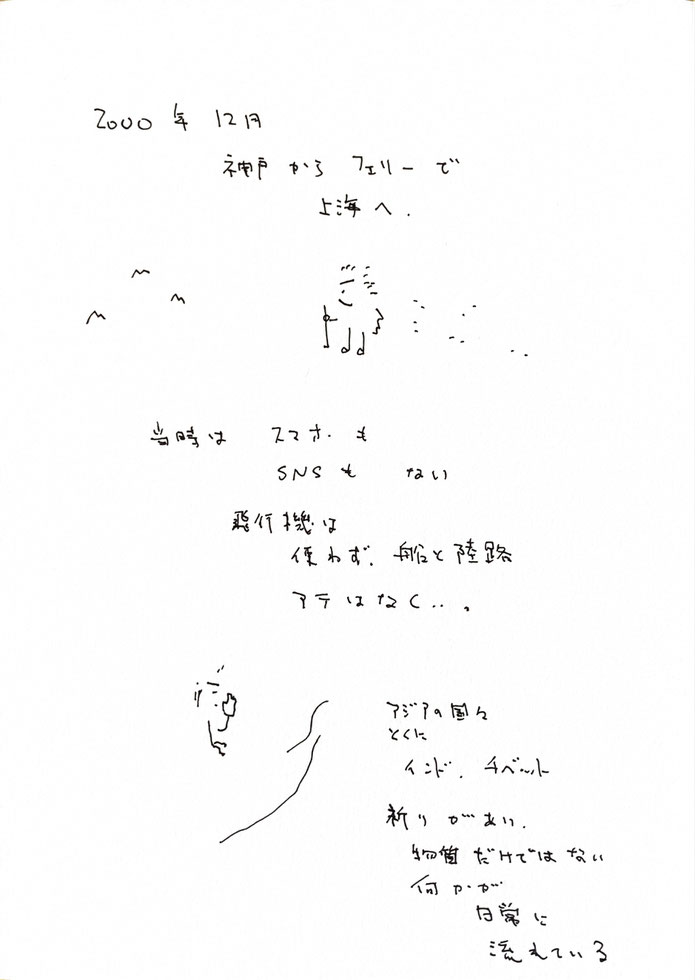 2000年 12月
神戸から フェリーで
上海へ.
当時は スマホも
SNSも ない
飛行機は
使わず、船と陸路
アテはなく‥。
アジアの国々
とくに
インド、チベット
祈りがあり、
物質だけではない
何かが
日常に
流れている